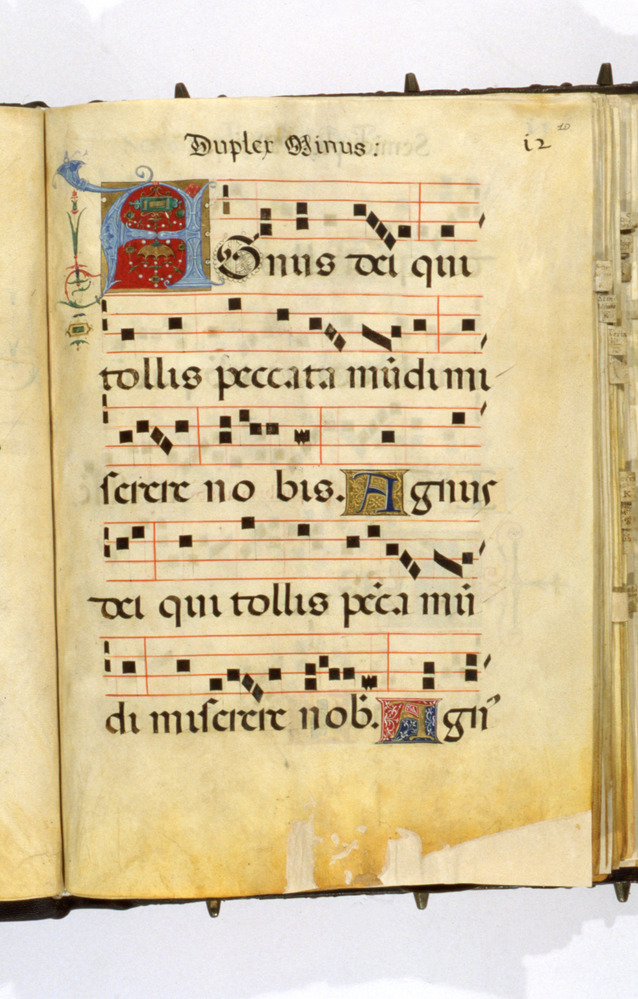 Duplex Minus: 12 10
AGnus dei qui
tollis peccata mūdi mi
serere no bis. Agnus
dei qui tollis pecc̄a mū
di miserere nob̄. Agn̄